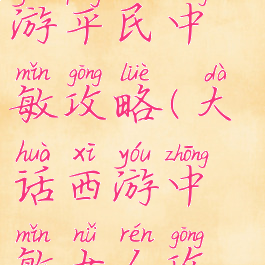 游平民中
mǐn gōng lüè dà
敏攻略(大
huà xī yóu zhōng
话西游中
mǐn nǚ rén gōng
敏女人攻